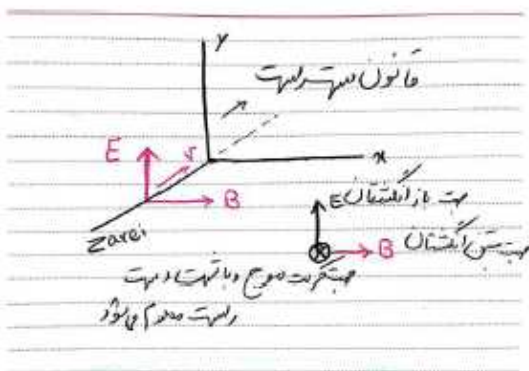 y
قانون دست راست
E
v
B
x
Zarei
E جهت باز انگشتان
B جهت بستن انگشتان
جهت حرکت موج و با شست دست
راست معلوم می‌شود